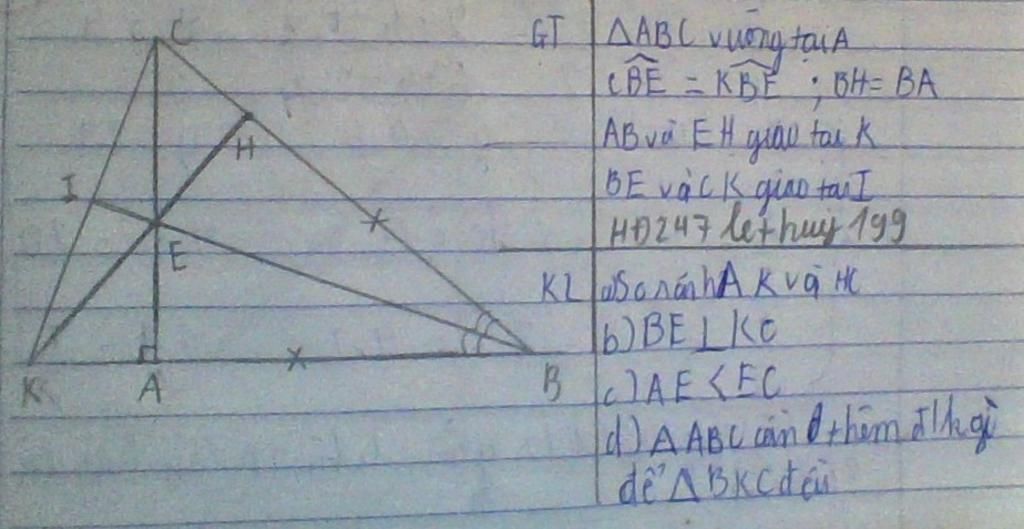 C
GT
ΔABC vuông tại A
CBE = KBE ; BH = BA
H
AB và EH giao tại K
I
BE và CK giao tại I
HĐ247 lethuy199
E
KL
a) So sánh AK và HC
b) BE ⊥ KC
K A B
c) AE < EC
d) ΔABC cần thêm đ/k gì
để ΔBKC đều